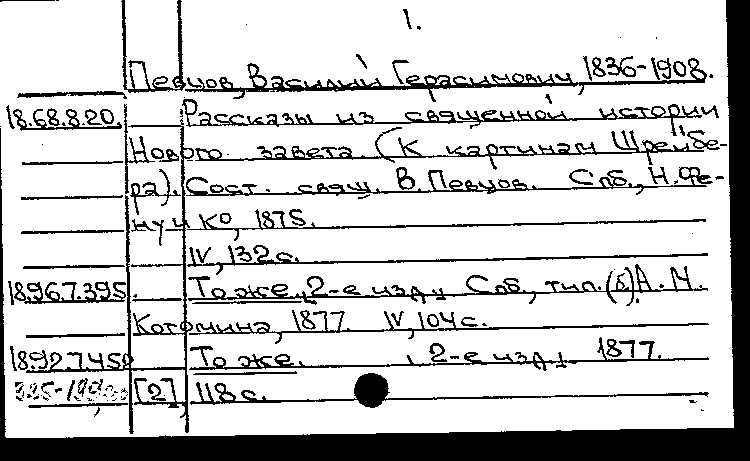 1.
Певцов, Василий Герасимович, 1836-1908.
18.68.8.20. Рассказы из священной истории
Нового завета (К картинам Шрейбе-
ра). Сост. свящ. В. Певцов. Спб., Н. Фе-
ну и К°, 1875.
IV, 132 с.
18.96.7.395. То же, 2-е изд., Спб., тип. (б) А. М.
Котомина, 1877. IV, 104 с.
18.92.7.452 То же. , 2-е изд. 1877.
[2], 118 с.